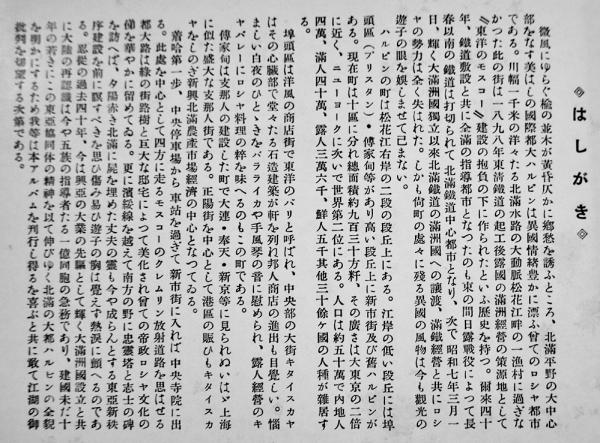 はしがき
微風にゆらぐ楡の並木が黄昏仄かに郷愁を誘ふところ、北滿平野の大中心
部をなす美はしの國際都大ハルピンは異國情緒豊かに漂ふ曾てのロシヤ都市
である。川幅一千米の洋々たる北滿水路の大動脈松花江畔の一漁村に過ぎな
かつた此の街は一八九八年東清鐵道の起工後露國の滿洲經營の策源地として
〝東洋のモスコー〟建設の抱負の下に作られたといふ歷史を持つ。爾來四十
年、鐵道敷設と共に全滿の指導都市となつたのも束の間日露戰役によつて長
春以南の鐵道は打切られて北滿鐵道中心都市となり、次で昭和七年三月一
日、輝く大滿洲國獨立以來北滿鐵道の滿洲國への讓渡、滿鐵經營と共にロシ
ヤの勢力は全く失はれた。しかも尙町の處々に殘る異國の風物は今も觀光の
遊子の眼を娯しませて已まない。
ハルピンの町は松花江右岸の二段の段丘上にある。江岸の低い段丘には埠
頭區(プリスタン)・傅家甸等があり高い段丘上に新市街及び舊ハルピンが
ある。現在町は十區に分れ總面積約九百三十方粁、その廣さは大東京の二倍
に近く、ニューヨークに次いで世界第二位にある。人口は約五十萬で內地人
四萬、滿人四十萬、露人三萬六千、鮮人五千其他三十餘ヶ國の人種が雜居す
る。
埠頭區は洋風の商店街で東洋のパリと呼ばれ、中央部の大街キタイスカヤ
はその心臟部で堂々たる石造建築が軒を列ね邦人商店の進出も目覺しい。惱
ましい白夜のひとゝきをバラライカや手風琴の音に慰められ、露人經營のキ
ヤバレーにロシヤ料理の粹を味へるのもこの町である。
傅家甸は支那人の建設した町で大連・奉天・新京等に見られぬいはゞ上海
に似た盛大な支那人街である。正陽街を中心として港區の賑ひもキタイスカ
ヤをしのぎ新興北滿農產市場經濟の中心となつてゐる。
着哈第一歩、中央停車場から車站を過ぎて新市街に入れば中央寺院に出
る。此處を中心として四方に走るモスコーのクレムリン放射道路を思はせる
都大路は綠の街路樹と巨大な邸宅によつて美化され曾ての帝政ロシヤ文化の
俤を華やかに留めてゐる。更に濱綏線を越えて南方の野に忠靈塔と志士の碑
を訪へば、夕陽赤き北滿に屍を埋めた丈夫の靈も今や成らんとする東亞新秩
序建設を前に瞑すべきを思ひ傷み易ひ遊子の胸は覺えず熱淚に顫へるのであ
る。思ひ從の過去四十年、今は興亞の大業の先驅として輝く大滿洲國設立と共
に大陸の再認識は今や五族の指導者たる一億同胞の急務であり、建國未だ十
年の若きにこの東亞協同体の精神を以て伸びゆく北滿の大都ハルピンの全貌
を明かにするため我等は本アルバムを刊行し得るを喜ぶと共に敢て江湖の御
批判を切望する次第である。